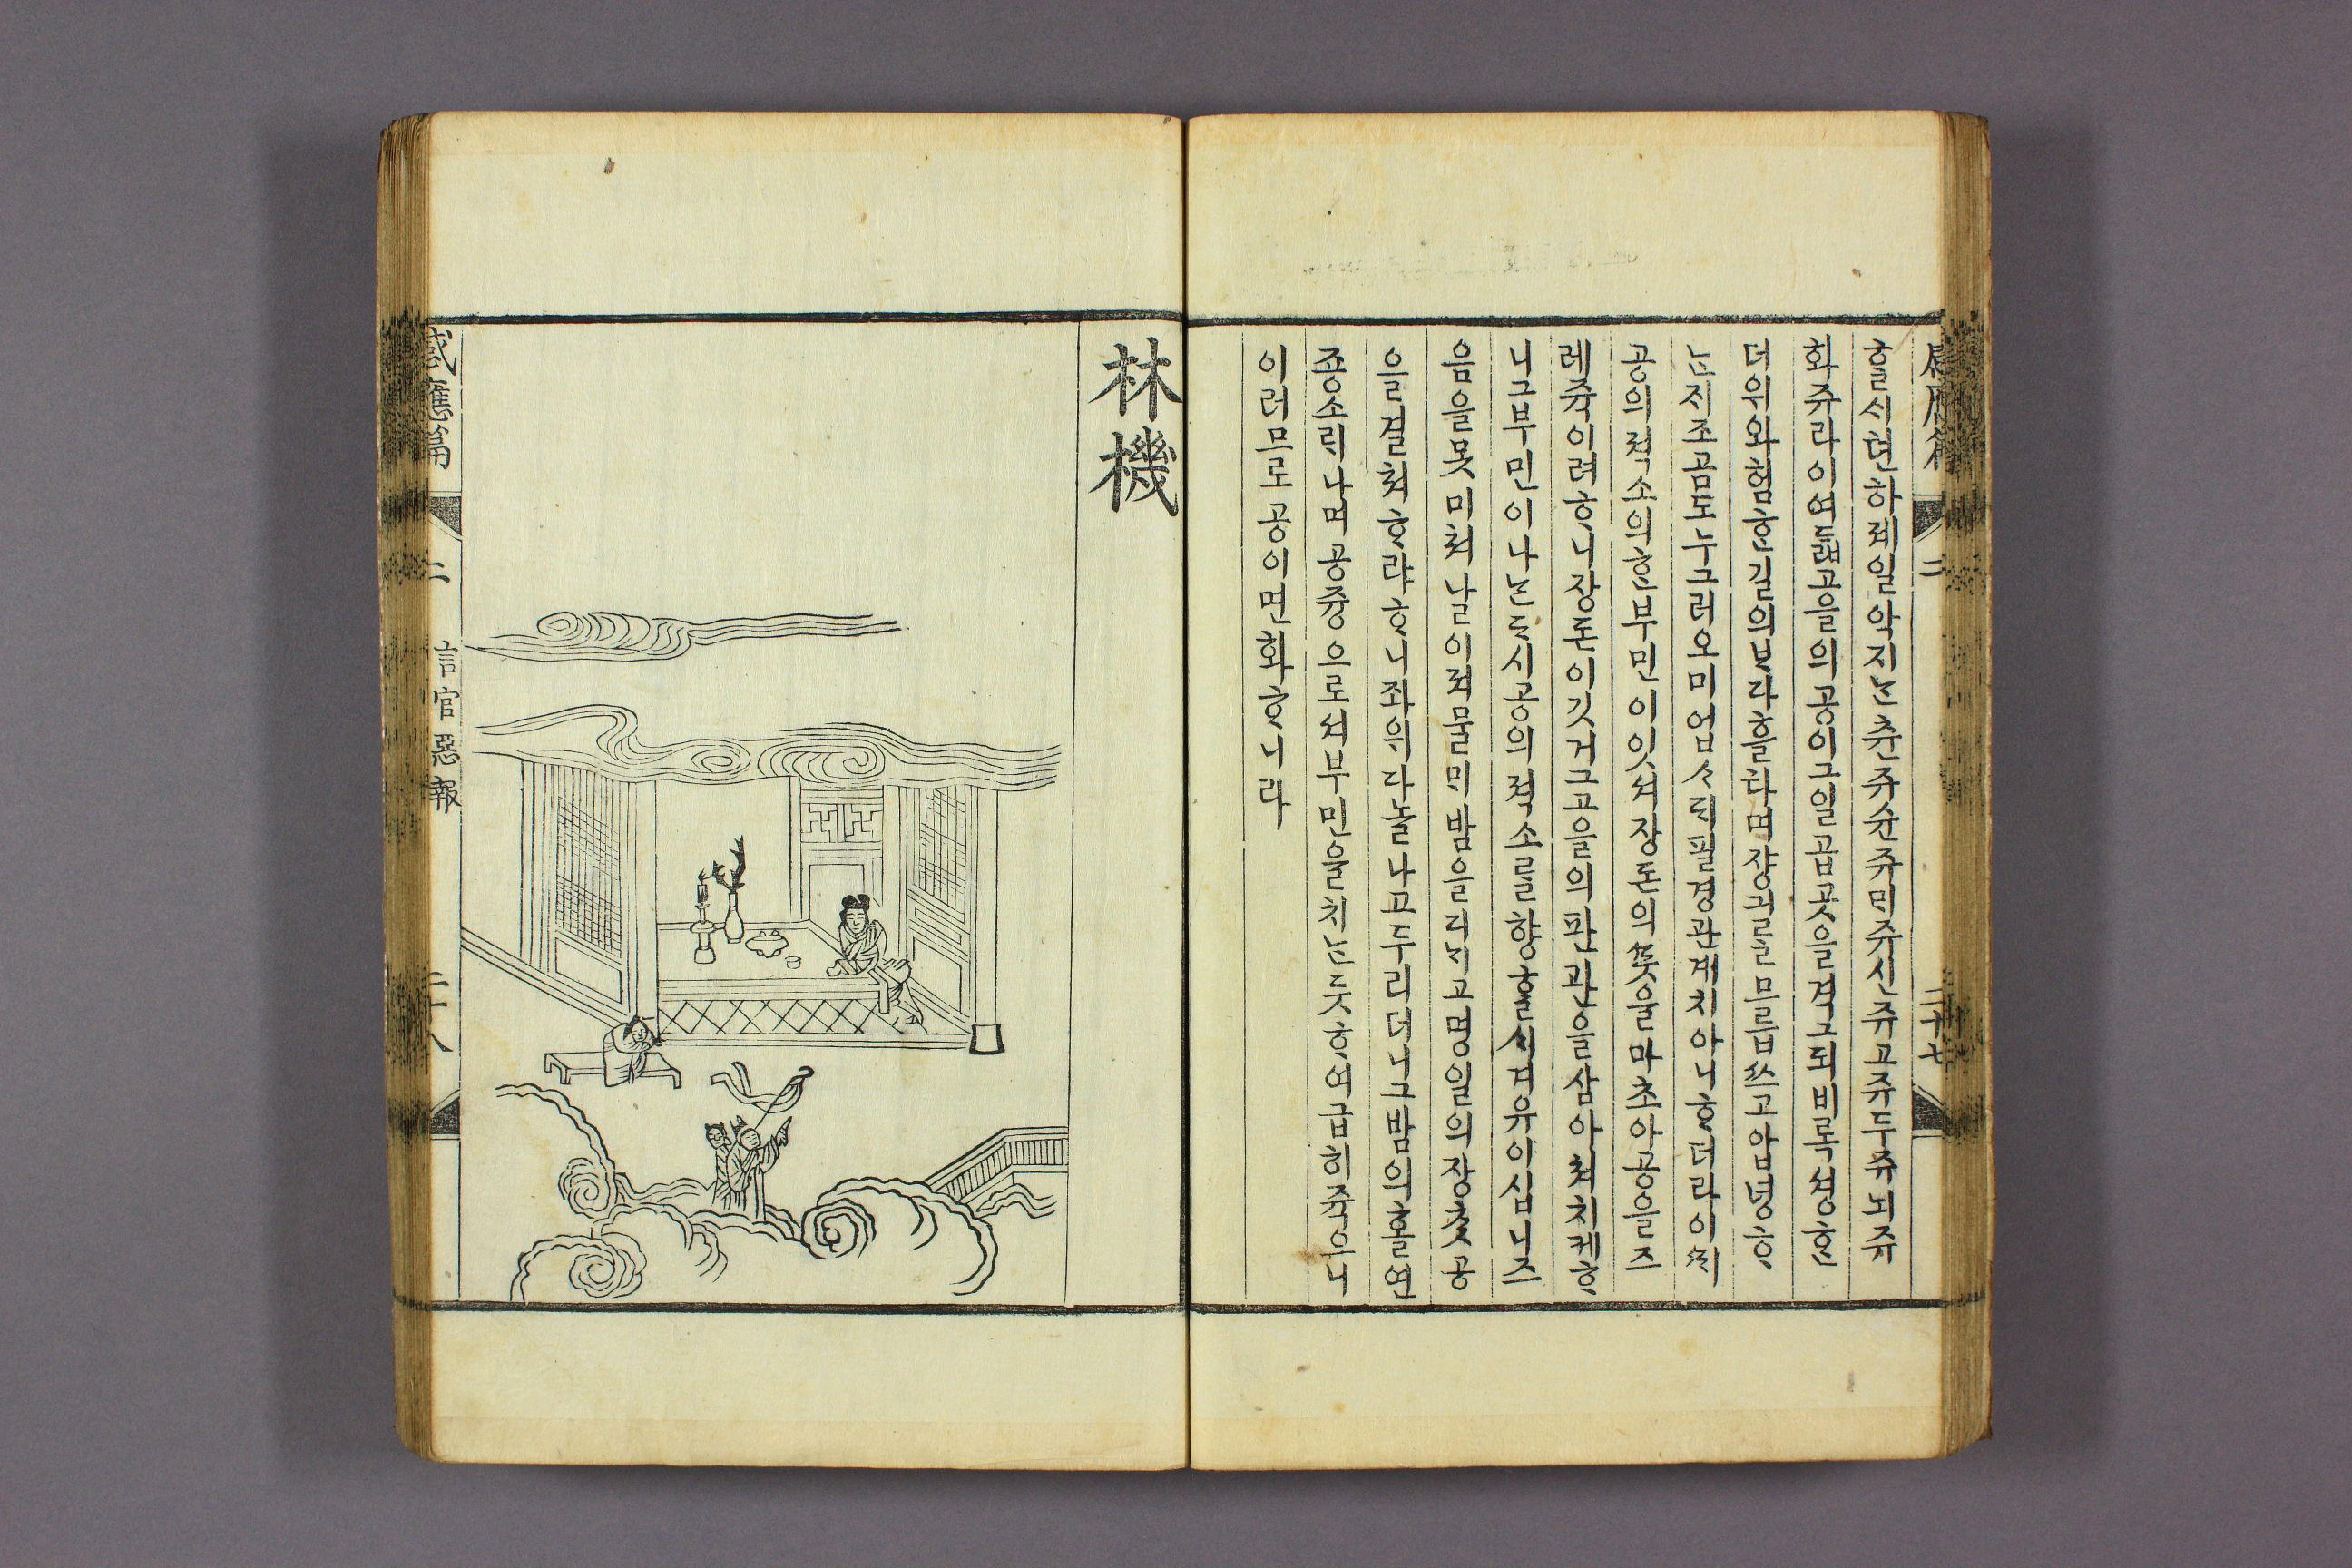 感應篇 二 二十七
ᄒᆞᆯᄉᆡ던하졔일악지ᄂᆞᆫ츈쥬슌쥬ᄆᆡ쥬신쥬고쥬두쥬뇌쥬
화쥬라이여ᄃᆞᆲ고을의공이그일곱곳을격그되비록셩ᄒᆞᆫ
더위와험ᄒᆞᆫ길의ᄇᆞ라ᄒᆞᆯ라며쟝긔를므릅쓰고암녕ᄒᆞ
ᄂᆞᆫᄌᆡ조곰도누그러오미업ᄉᆞᄃᆡ필경관계치아니ᄒᆞ더라이ᄯᆡ
공의젹소의ᄒᆞᆫ부민이잇셔쟝돈의ᄯᅳᆺ을마초아공을ᄌᆞ
레쥭이려ᄒᆞ니쟝돈이깃거그고을의판관을삼아쳐치케ᄒᆞ
니그부민이나ᄂᆞᆫᄃᆞ시공의젹소를향ᄒᆞᆯᄉᆡ겨유이십니ᄌᆞ
음을못미쳐날이져물ᄆᆡ밤을디ᄂᆡ고명일의쟝ᄎᆞᆺ공
을결쳐ᄒᆞ랴ᄒᆞ니좌위다놀나고두리더니그밤의홀연
죵소ᄅᆡ나며공즁으로셔부민을치ᄂᆞᆫᄃᆞᆺᄒᆞ여급히쥭으니
이러므로공이면화ᄒᆞ니라
林機
感應篇 二 言官惡報 二十八